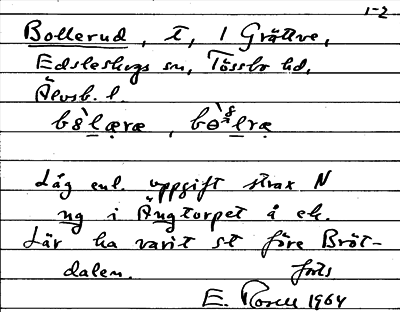 1-2
Bollerud, t, i Grättve,
Edsleskogs sn, Tössbo hd,
Älvsb. l.
Låg enl. uppgift strax N
ng i Ängtorpet å ek.
Lär ha varit st före Bröt-
dalen. forts
E. Rosell 1964